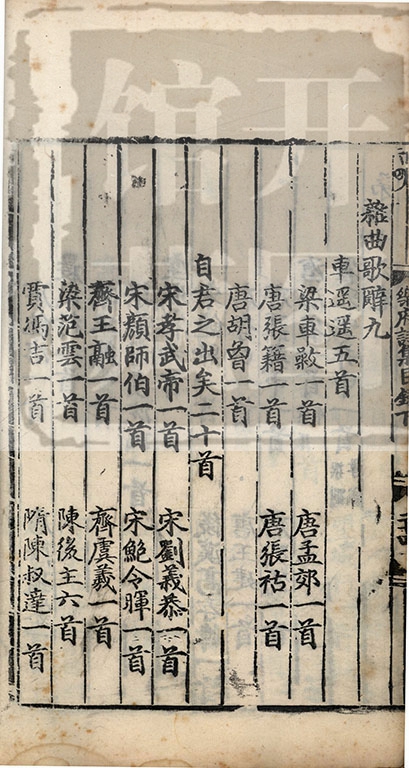 樂府詩集目録下
雜曲歌辭九
車遥遥五首
梁車𢾭一首 唐孟郊一首
唐張籍一首 唐張祜一首
唐胡曾一首
自君之出矣二十首
宋孝武帝一首 宋劉義恭一首
宋顔師伯一首 宋鮑令暉一首
齊王融一首 齊虞羲一首
梁范雲一首 陳後主六首
賈馮吉一首 隋陳叔達一首